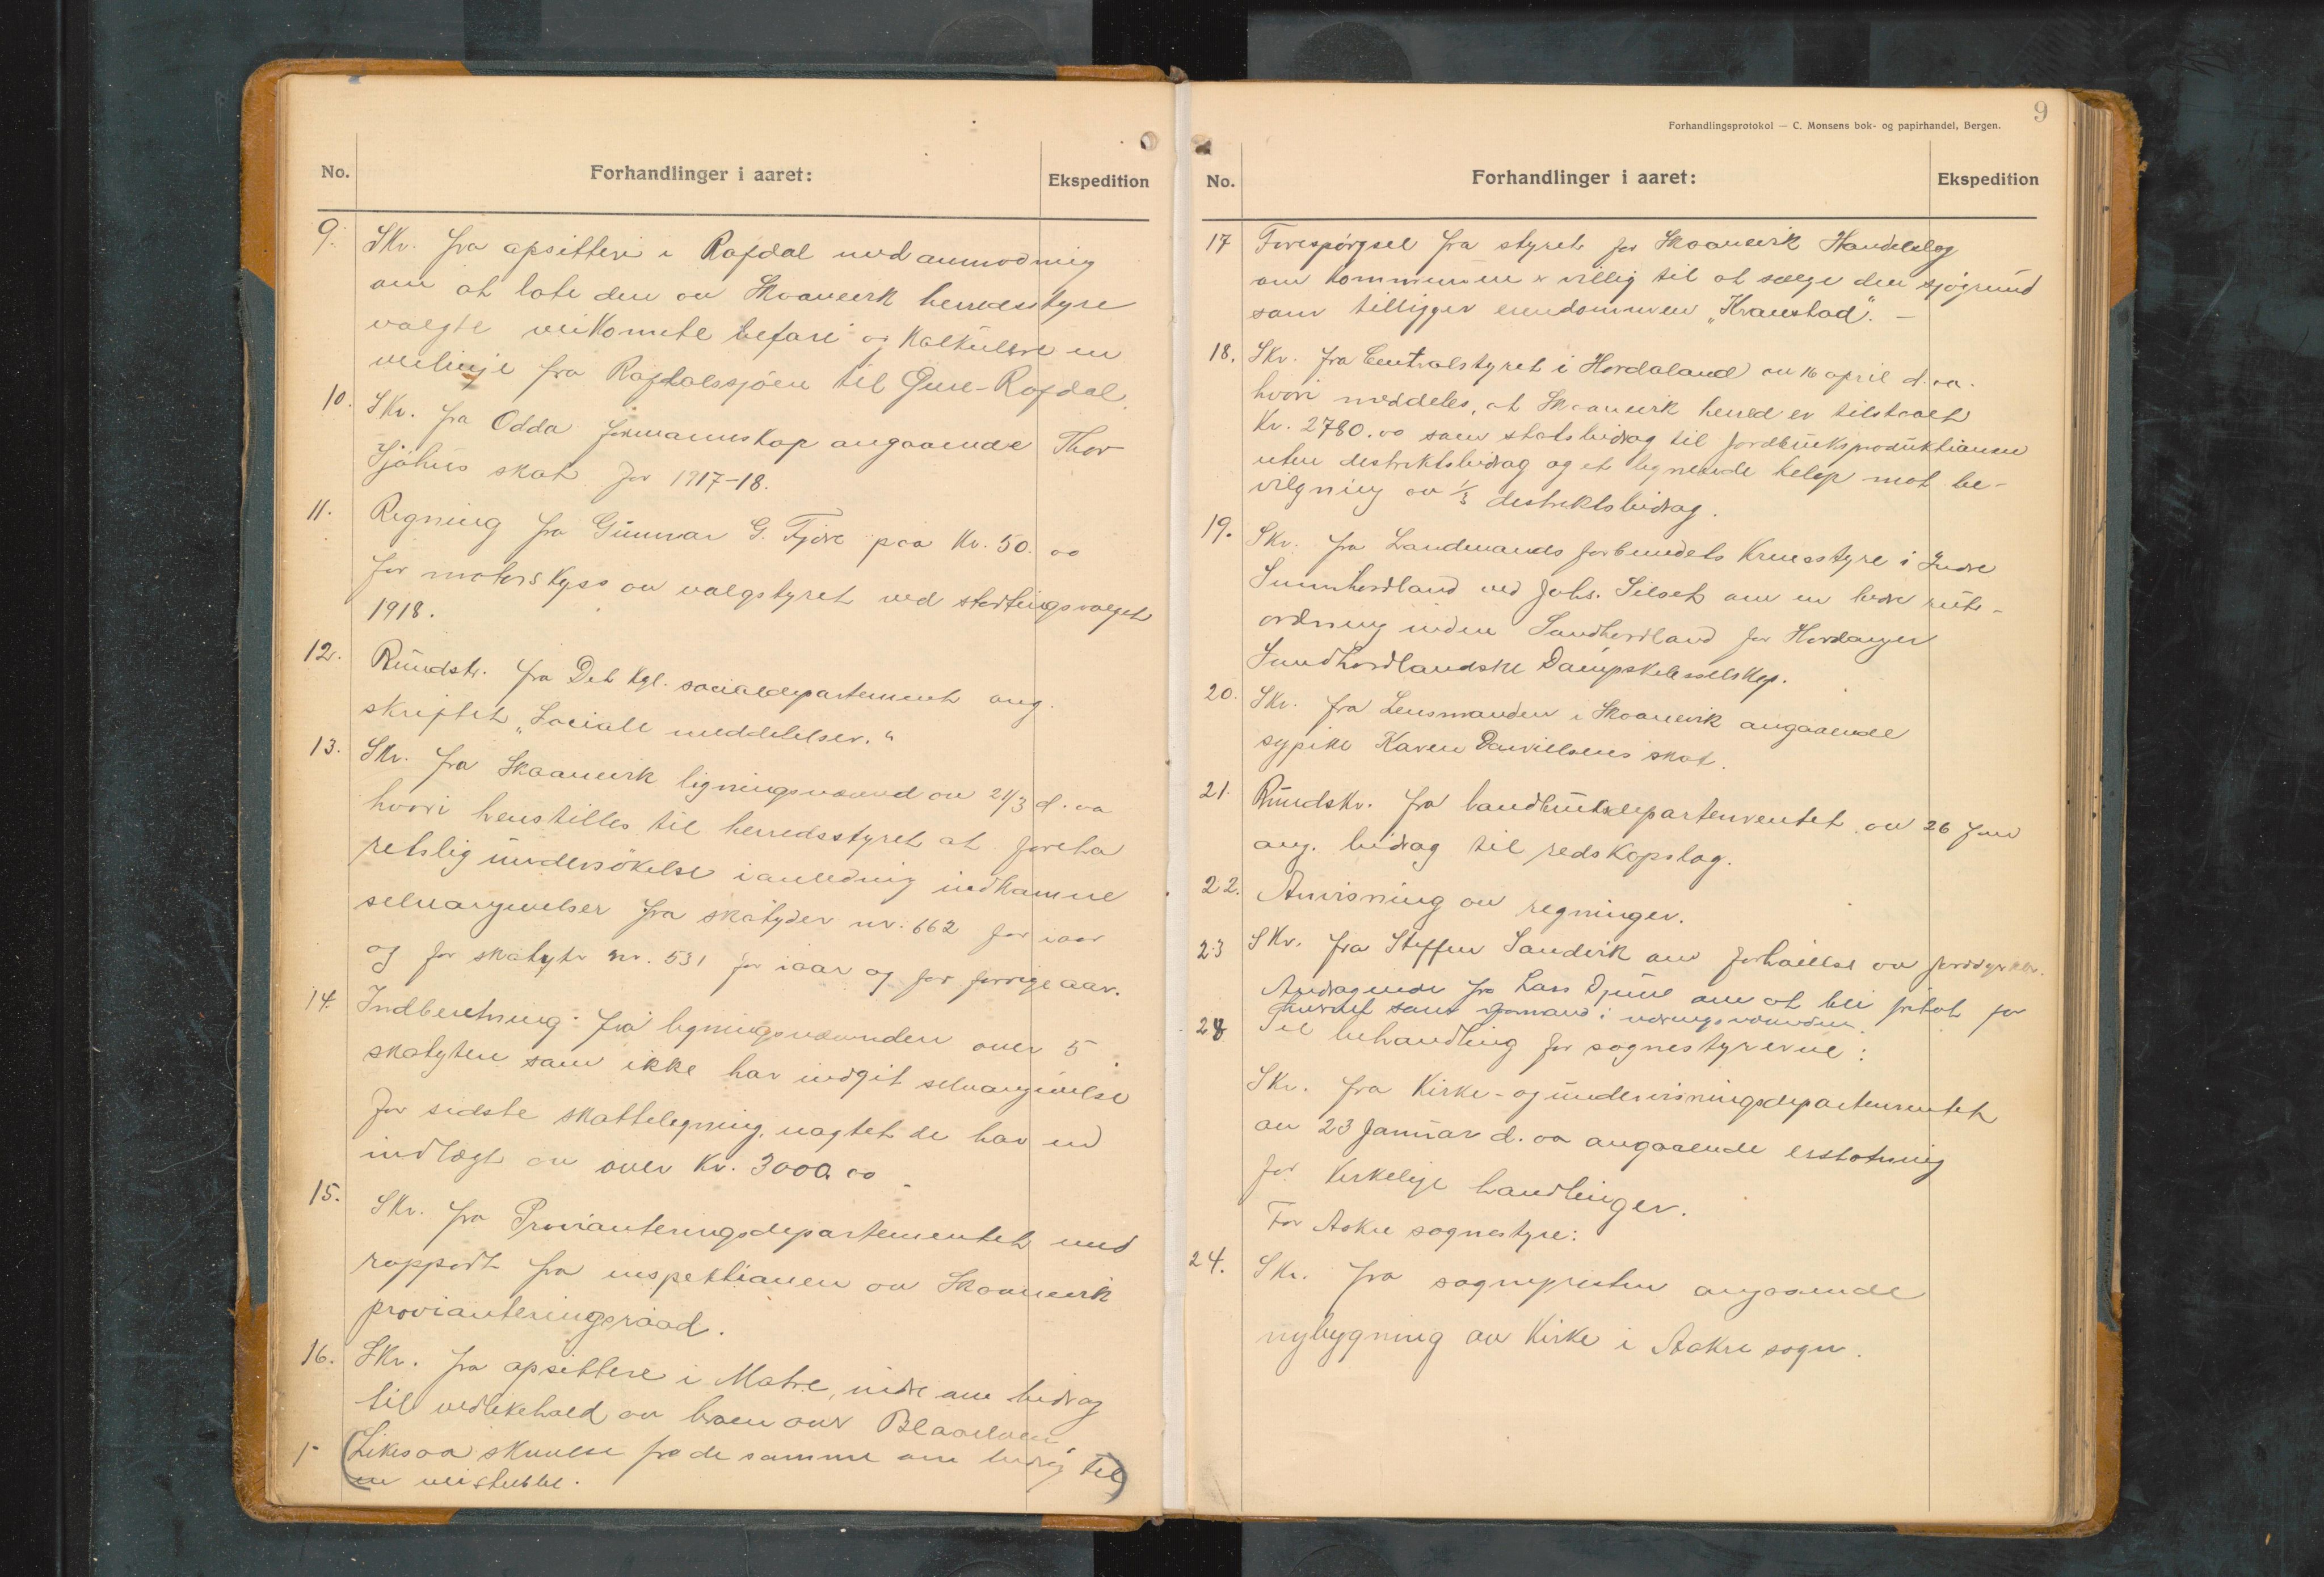 No.
Forhandlinger i aaret:
Ekspedition
9. Skr. fra opsittere i Rafdal med anmodning
om at late den av Skaanevik herredsstyre
valgte veikomite befare og kalkulere en
veilinje fra Rafdalssjøen til Øvre-Rafdal.
10. Skr. fra Odda formannskap angaaende Thor
skat for 1917-18.
11. Regning fra Gunnar G. Fjøre paa Kr. 50.00
for motorskyss av valgstyret ved stortingsvalget
1918.
12. Rundskr. fra Det kgl. socialdepartement ang.
skriftet „Sociale meddelelser."
13. Skr. fra Skaanevik ligningsnævnd av 21/3 d. aa
hvori henstilles til herredsstyret at foreta
retslig undersökelse i anledning indkomne
selvangivelser fra skatyder nr. 662 for iaar
og for skatyter nr. 531 for iaar og for forrige aar.
14. Indberetning fra ligningsnævnden over 5
skatytere som ikke har indgit selvangivelse
for sidste skatteligning, uagtet de har en
indtægt av over Kr. 3000.00
15. Skr. fra Provianteringsdepartementet med
rapport fra inspektionen av Skaanevik
provianteringsraad.
16. Skr. fra opsittere i Matre, indre om bidrag
til vedlikehold av broen over Blaaelven
(Likesaa skrivelse fra de samme om bidrag til
en veistubbe.)
9
Forhandlingsprotokol — C. Monsens bok- og papirhandel, Bergen.
No.
Forhandlinger i aaret:
Ekspedition
17 Forespörgsel fra styret for Skaanevik Handelslag
om kommunen er villig til at sælge den sjøgrund
som tilligger eiendommen „Kranstad". —
18. Skr. fra Centralstyret i Hordaland av 16 april d. aa.
hvori meddeles, at Skaanevik herred er tilstaaet
Kr. 2780.00 som statsbidrag til jordbruksproduktionen
uten distriktsbidrag og et lignende beløp mot be-
vilgning av 1/3 distriktsbidrag.
19. Skr. fra Landmandsforbundets Kredsstyre i Indre
Sunnhordland ved Johs. om en bedre rute-
ordning inden Sundhordland for Hardanger
Sundhordlandske Dampskibsselskap.
20. Skr. fra Lensmanden i Skaanevik angaaende
sypike Karen Danielsens skat.
21. Rundskr. fra landbruksdepartementet av 26 Jan
ang. bidrag til redskapslag.
22. Anvisning av regninger.
23 Skr. fra Steffen Sandvik om forhöielse av
Andragende fra Lars Djuve om at bli fritat for
hvervet som formand i nævnden.
24 Til behandling for sognestyrerne:
Skr. fra Kirke- og undervisningsdepartementet
av 23 Januar d. aa angaaende erstatning
for kirkelige handlinger.
For Aakre sognestyre:
24. Skr. fra sognepresten angaaende
nybygning av Kirke i Aakre sogn.